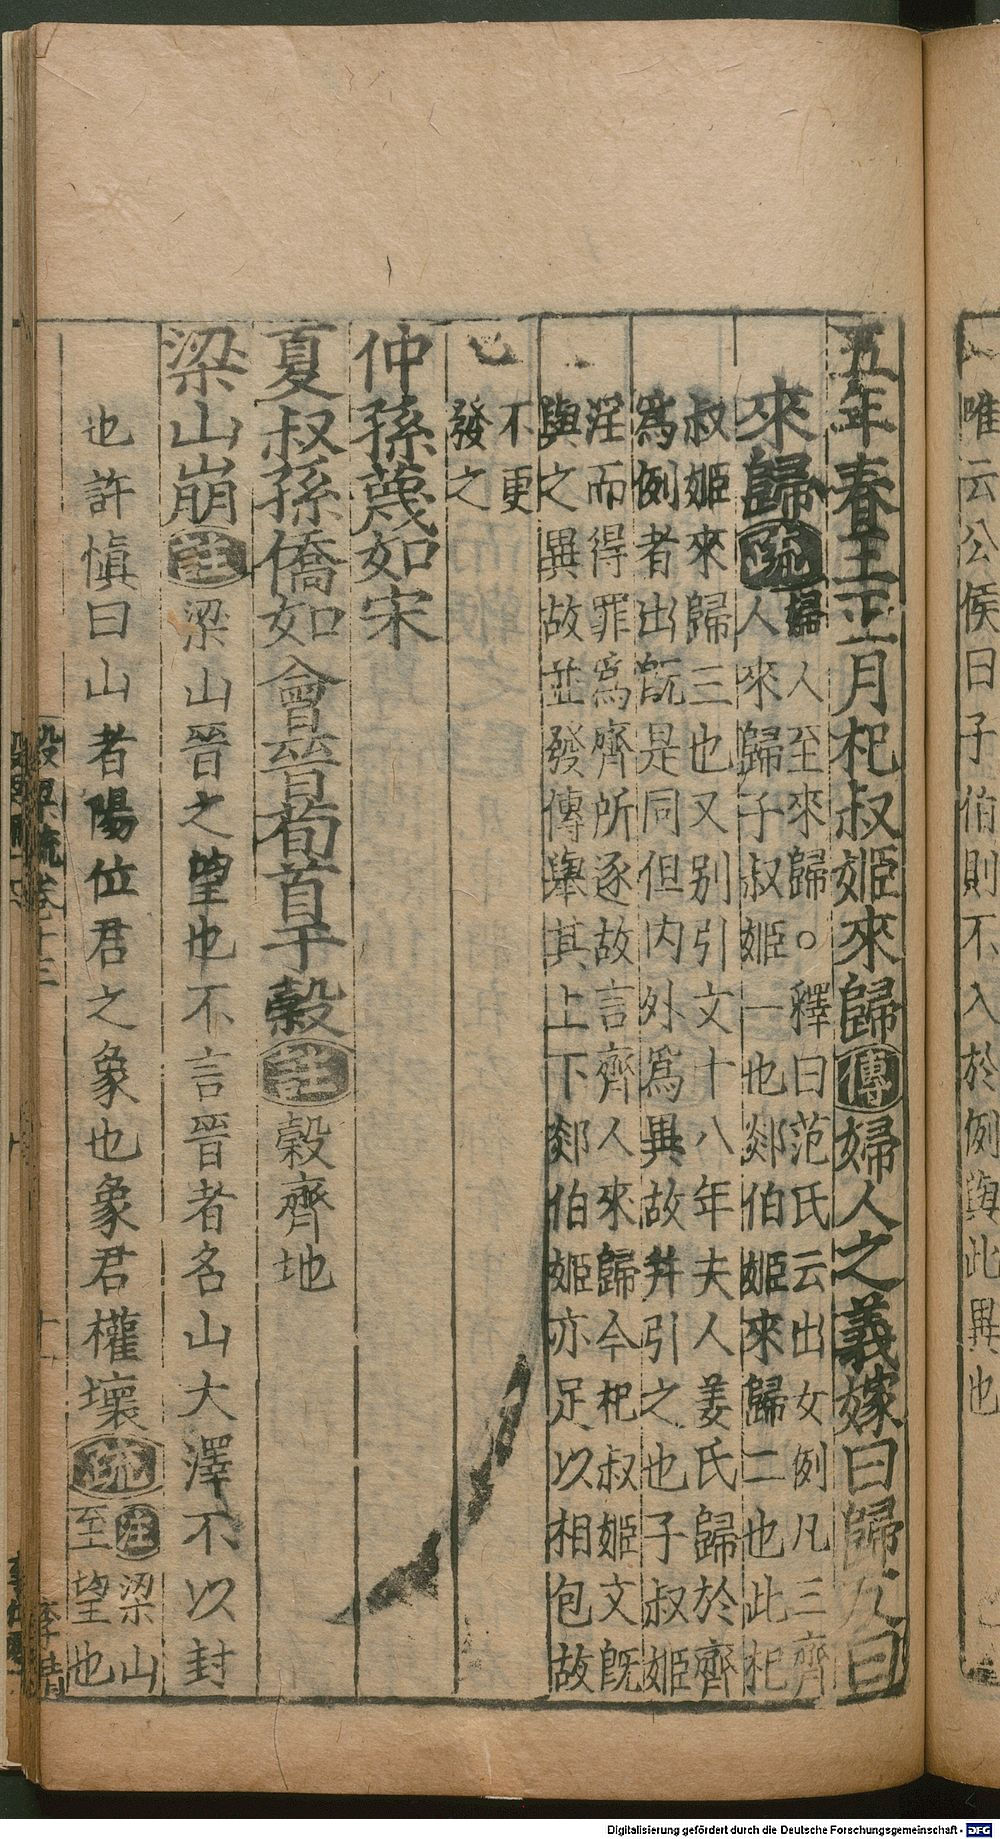 五年春王正月杞叔姬來歸傳婦人之義嫁曰歸反曰
來歸疏
婦人至來歸○釋曰范氏云出女例凡三齊
人來歸子叔姬一也郯伯姬來歸二也此杞
叔姬來歸三也又別引文十八年夫人姜氏歸於齊
爲例者出既是同但内外爲異故并引之也子叔姬
淫而得罪爲齊所逐故言齊人來歸今杞叔姬文既
與之異故並發傳舉其上下郯伯姬亦足以相包故
不更
發之
仲孫蔑如宋
夏叔孫僑如會晉荀首于穀註穀齊地
梁山崩註梁山晉之望也不言晉者名山大澤不以封
也許愼曰山者陽位君之象也象君權壞疏
注梁山
至望也
穀梁疏卷十三
唯云公侯曰子伯則不入於例與此異也
Digitalisierung gefördert durch die Deutsche Forschungsgemeinschaft - DFG